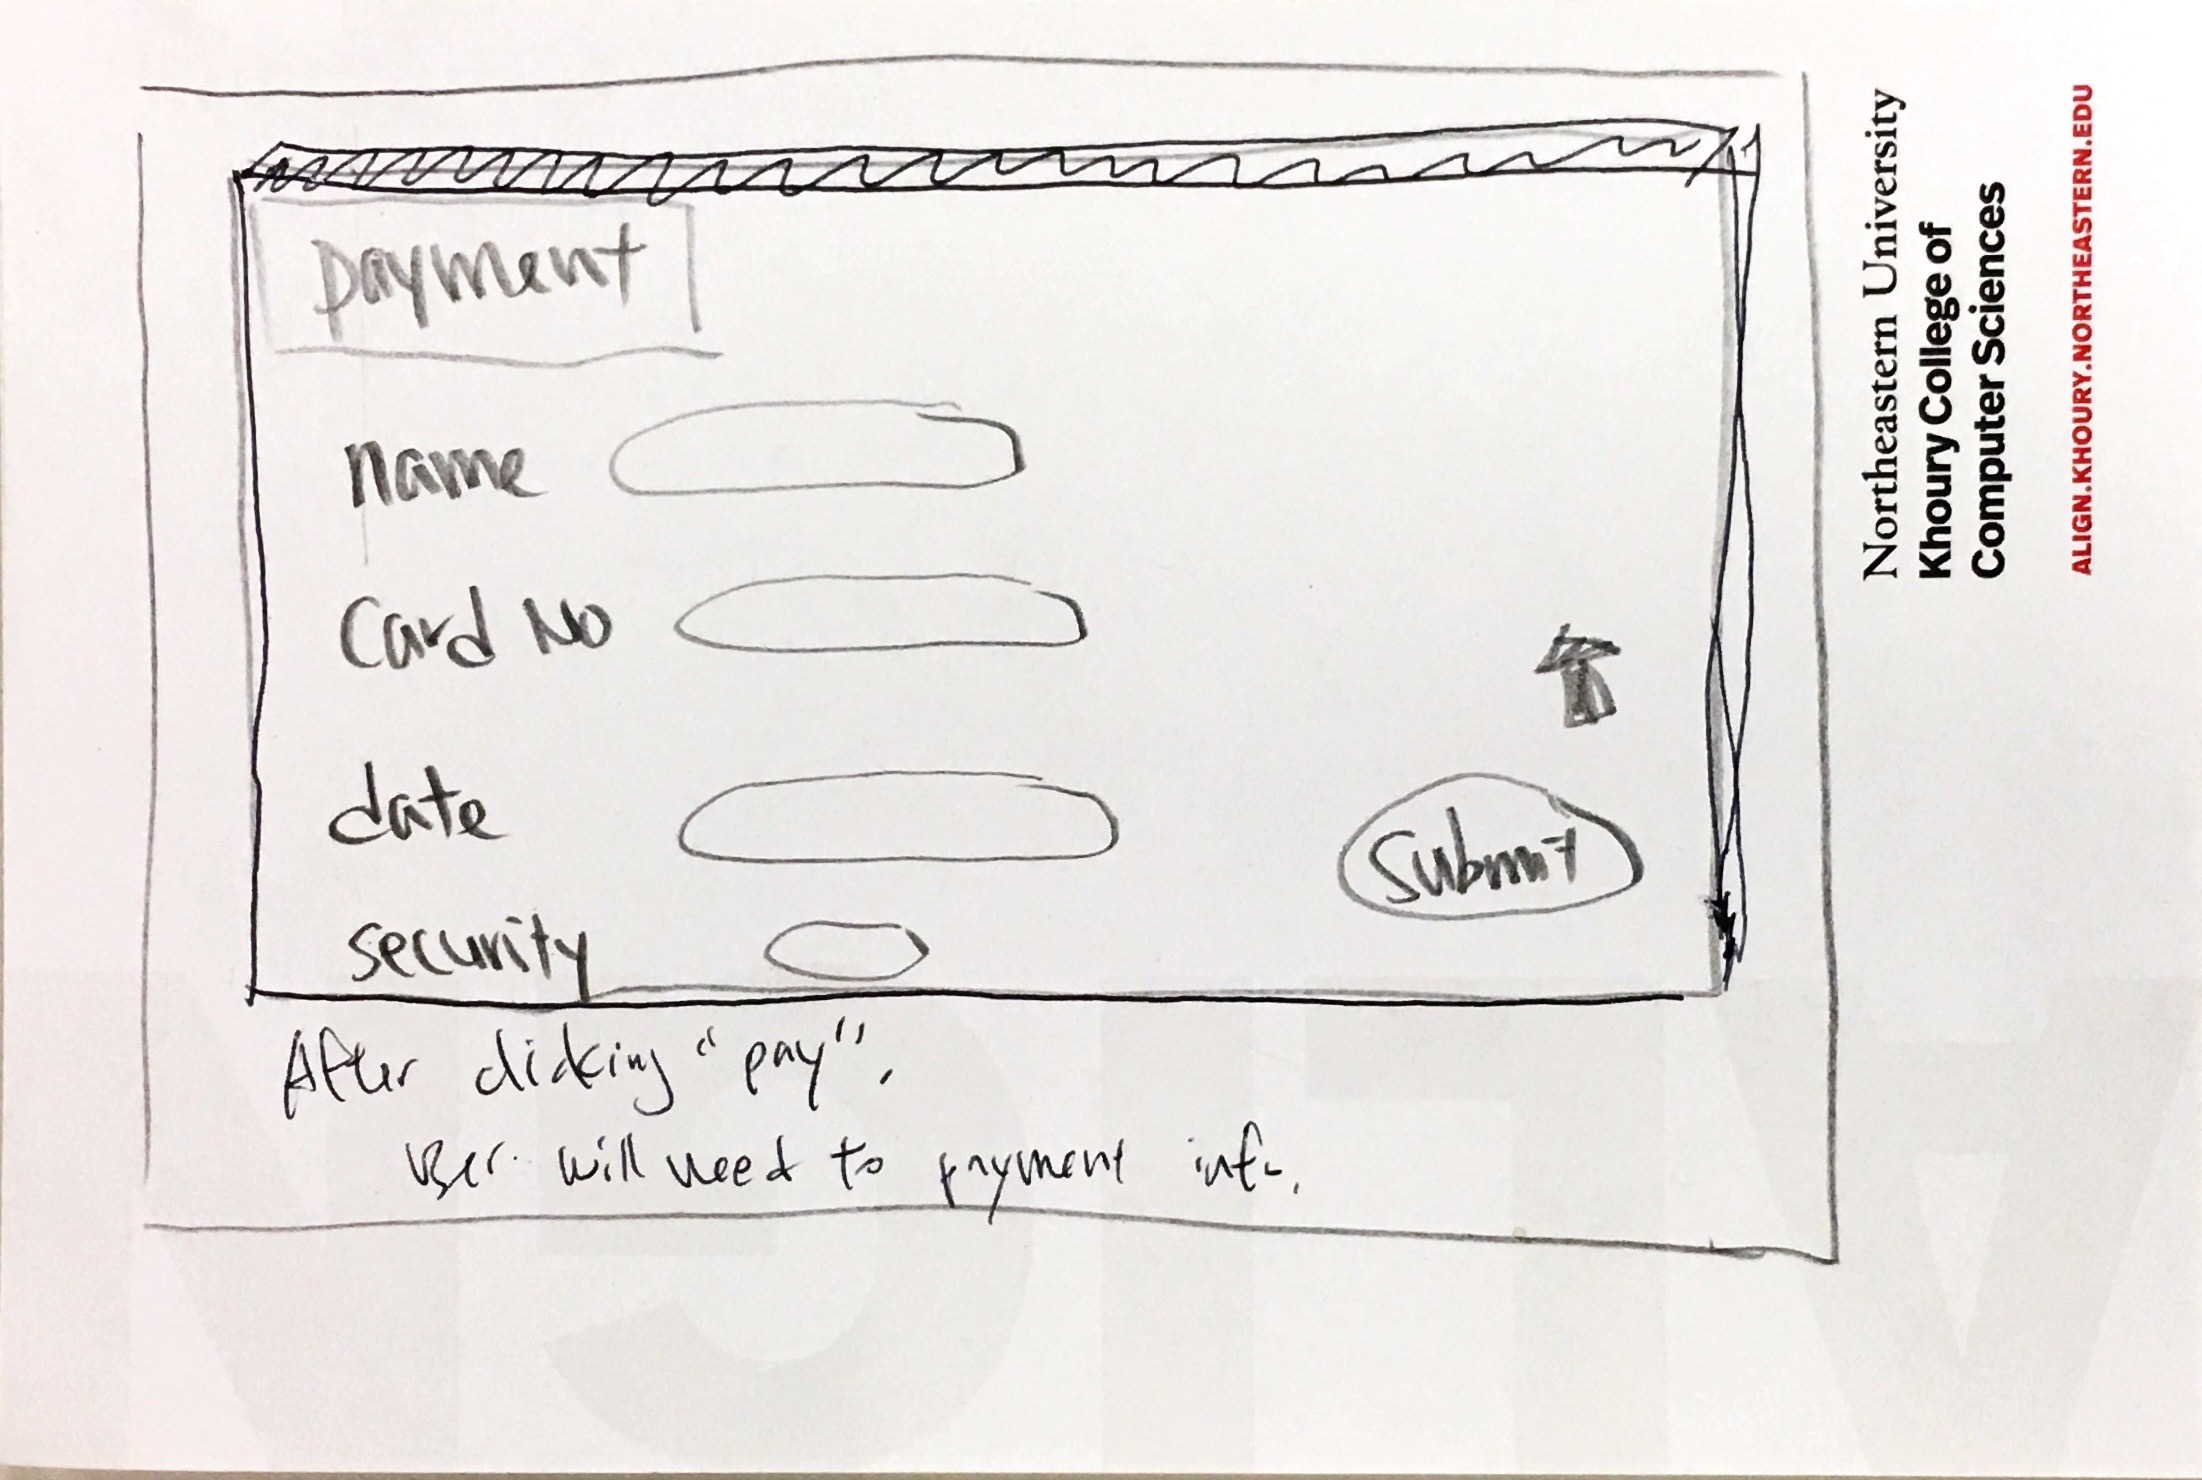 payment
name
Card No
date
Submit
security
After clicking "pay".
User will need to payment info.
Northeastern University
Khoury College of
Computer Sciences
ALIGN.KHOURY.NORTHEASTERN.EDU